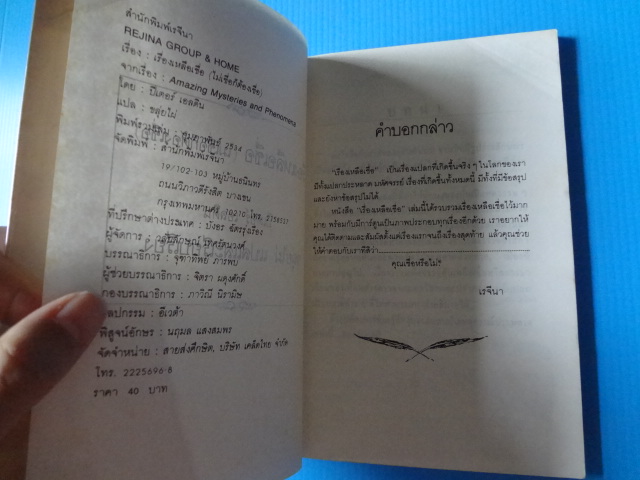 สำนักพิมพ์เรจีนา
REJINA GROUP & HOME
เรื่อง : เรื่องเหลือเชื่อ (ไม่เชื่อก็ต้องเชื่อ)
จากเรื่อง : Amazing Mysteries and Phenomena
โดย : ปีเตอร์ เอลดิน
แปล : ขลุ่ยไผ่
พิมพ์รวมเล่ม : กุมภาพันธ์ 2534
จัดพิมพ์ : สำนักพิมพ์เรจีนา
19/102-103 หมู่บ้านธนินทร
ถนนวิภาวดีรังสิต บางเขน
กรุงเทพมหานคร 10210 โทร.
ที่ปรึกษาต่างประเทศ : บังอร ฉัตรรุ่งเรือง
ผู้จัดการ :
บรรณาธิการ : จุฑาทิพย์
ผู้ช่วยบรรณาธิการ : จิตรา ผดุงศักดิ์
กองบรรณาธิการ : ภาวิณี นิรามิษ
ศิลปกรรม : อีเวต้า
พิสูจน์อักษร : นฤมล แสงสมพร
จัดจำหน่าย : สายส่งศึกษิต, บริษัท เคล็ดไทย จำกัด
โทร. 2225696-8
ราคา 40 บาท
คำบอกกล่าว
"เรื่องเหลือเชื่อ" เป็นเรื่องแปลกที่เกิดขึ้นจริง ๆ ในโลกของเรา
มีทั้งแปลกประหลาด มหัศจรรย์ เรื่องที่เกิดขึ้นทั้งหมดนี้ มีทั้งที่มีข้อสรุป
และยังหาข้อสรุปไม่ได้
หนังสือ "เรื่องเหลือเชื่อ" เล่มนี้ได้รวบรวมเรื่องเหลือเชื่อไว้มาก
มาย พร้อมกับมีการ์ตูนเป็นภาพประกอบทุกเรื่องอีกด้วย เราอยากให้
คุณได้ติดตามและสัมผัสตั้งแต่เรื่องแรกจนถึงเรื่องสุดท้าย แล้วคุณช่วย
ให้คำตอบกับเราทีสิว่า
คุณเชื่อหรือไม่?
เรจีนา